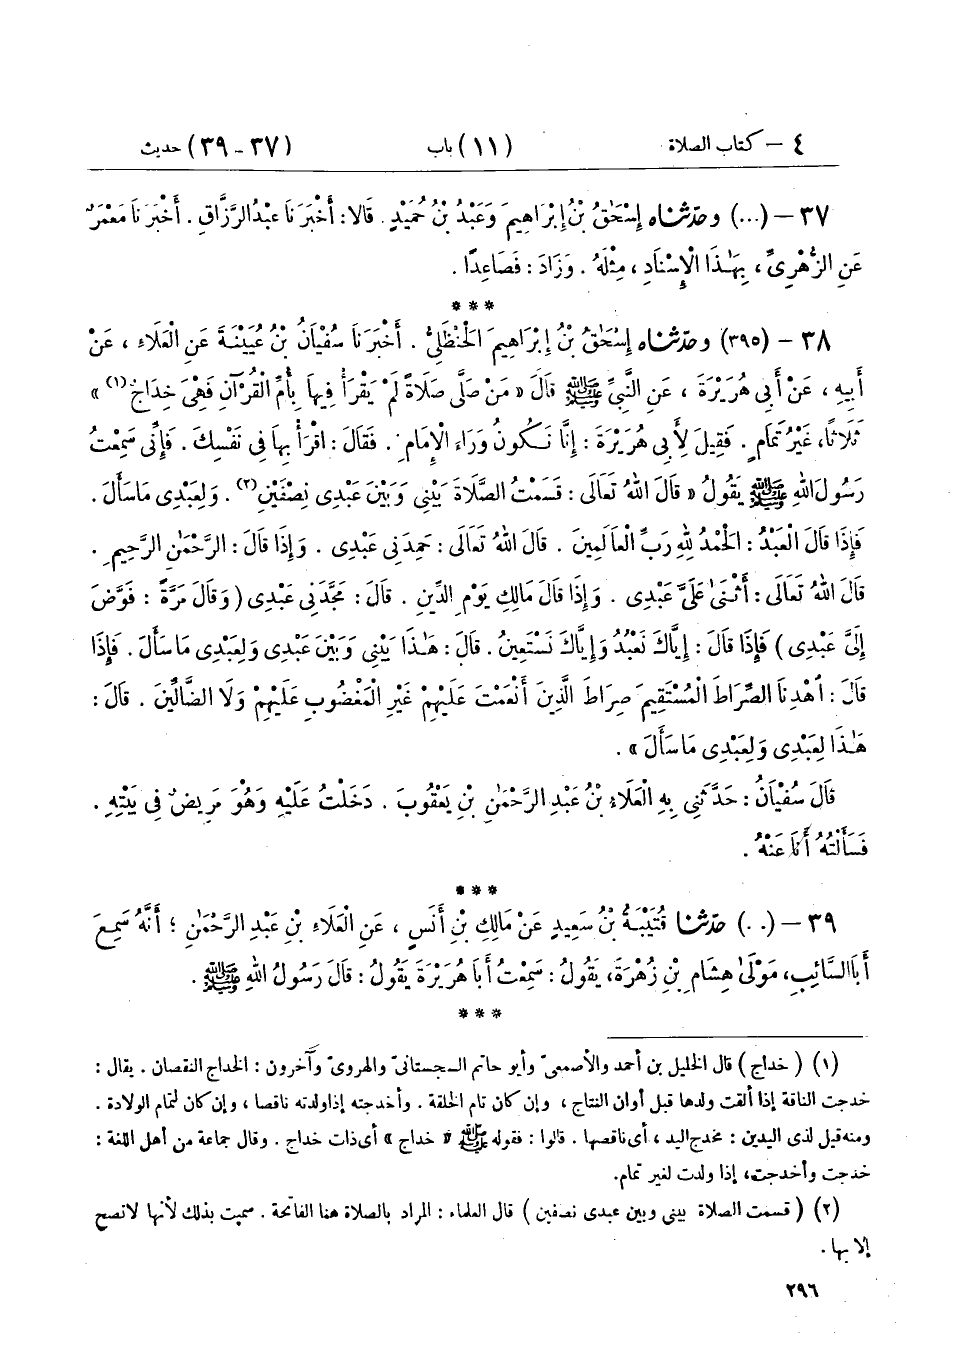 ٤ – كتاب الصلاة (١١) باب (٣٧ – ٣٩) حديث
٣٧ – (...) وحَدَّثَنَاه إِسْحَٰقُ بْنُ إِبْرَاهِيمَ وَعَبْدُ بْنُ حُمَيْدٍ . قَالَا : أَخْبَرَنَا عَبْدُ الرَّزَّاقِ . أَخْبَرَنَا مَعْمَرٌ
عَنِ الزُّهْرِيِّ ، بِهَٰذَا الْإِسْنَادِ ، مِثْلَهُ . وَزَادَ : فَصَاعِدًا .
***
٣٨ – (٣٩٥) وحَدَّثَنَاه إِسْحَٰقُ بْنُ إِبْرَاهِيمَ الْحَنْظَلِيُّ . أَخْبَرَنَا سُفْيَانُ بْنُ عُيَيْنَةَ عَنِ الْعَلَاءِ ، عَنْ
أَبِيهِ ، عَنْ أَبِي هُرَيْرَةَ ، عَنِ النَّبِيِّ ﷺ قَالَ « مَنْ صَلَّى صَلَاةً لَمْ يَقْرَأْ فِيهَا بِأُمِّ الْقُرْآنِ فَهْىَ خِدَاجٌ(١) »
ثَلَاثًا، غَيْرُ تَمَامٍ . فَقِيلَ لِأَبِي هُرَيْرَةَ : إِنَّا نَكُونُ وَرَاءَ الْإِمَامِ . فَقَالَ : اقْرَأْ بِهَا فِي نَفْسِكَ . فَإِنِّي سَمِعْتُ
رَسُولَ اللهِ ﷺ يَقُولُ « قَالَ اللهُ تَعَالَى : قَسَمْتُ الصَّلَاةَ بَيْنِي وَبَيْنَ عَبْدِي نِصْفَيْنِ(٢) . وَلِعَبْدِي مَا سَأَلَ .
فَإِذَا قَالَ الْعَبْدُ : الْحَمْدُ لِلهِ رَبِّ الْعَالَمِينَ . قَالَ اللهُ تَعَالَى : حَمِدَنِي عَبْدِي . وَإِذَا قَالَ : الرَّحْمَٰنِ الرَّحِيمِ .
قَالَ اللهُ تَعَالَى : أَثْنَىٰ عَلَيَّ عَبْدِي . وَإِذَا قَالَ مَالِكِ يَوْمِ الدِّينِ . قَالَ : مَجَّدَنِي عَبْدِي ( وَقَالَ مَرَّةً : فَوَّضَ
إِلَيَّ عَبْدِي ) فَإِذَا قَالَ : إِيَّاكَ نَعْبُدُ وَإِيَّاكَ نَسْتَعِينُ . قَالَ : هَٰذَا بَيْنِي وَبَيْنَ عَبْدِي وَلِعَبْدِي مَا سَأَلَ . فَإِذَا
قَالَ : اهْدِنَا الصِّرَاطَ الْمُسْتَقِيمَ صِرَاطَ الَّذِينَ أَنْعَمْتَ عَلَيْهِمْ غَيْرِ الْمَغْضُوبِ عَلَيْهِمْ وَلَا الضَّالِّينَ . قَالَ :
هَٰذَا لِعَبْدِي وَلِعَبْدِي مَا سَأَلَ » .
قَالَ سُفْيَانُ : حَدَّثَنِي بِهِ الْعَلَاءُ بْنُ عَبْدِ الرَّحْمَٰنِ بْنِ يَعْقُوبَ . دَخَلْتُ عَلَيْهِ وَهُوَ مَرِيضٌ فِي بَيْتِهِ .
فَسَأَلْتُهُ أَنَا عَنْهُ .
***
٣٩ – (..) حَدَّثَنَا قُتَيْبَةُ بْنُ سَعِيدٍ عَنْ مَالِكِ بْنِ أَنَسٍ ، عَنِ الْعَلَاءِ بْنِ عَبْدِ الرَّحْمَٰنِ ؛ أَنَّهُ سَمِعَ
أَبَا السَّائِبِ، مَوْلَىٰ هِشَامِ بْنِ زُهْرَةَ، يَقُولُ : سَمِعْتُ أَبَا هُرَيْرَةَ يَقُولُ : قَالَ رَسُولُ اللهِ ﷺ .
***
(١) ( خداج ) قال الخليل بن أحمد والأصمعىّ وأبو حاتم السجستانىّ والهروىّ وآخرون : الخداج النقصان . يقال :
خدجت الناقة إذا ألقت ولدها قبل أوان النتاج ، وإن كان تام الخلقة . وأخدجته إذا ولدته ناقصا ، وإن كان لتمام الولادة .
ومنه قيل لذى اليدين : مخدج اليد ، أى ناقصها . قالوا : فقوله ﷺ « خداج » أى ذات خداج . وقال جماعة من أهل اللغة :
خدجت وأخدجت، إذا ولدت لغير تمام.
(٢) ( قسمت الصلاة بينى وبين عبدى نصفين ) قال العلماء : المراد بالصلاة هنا الفاتحة . سميت بذلك لأنها لا تصح
إلا بها .
٢٩٦